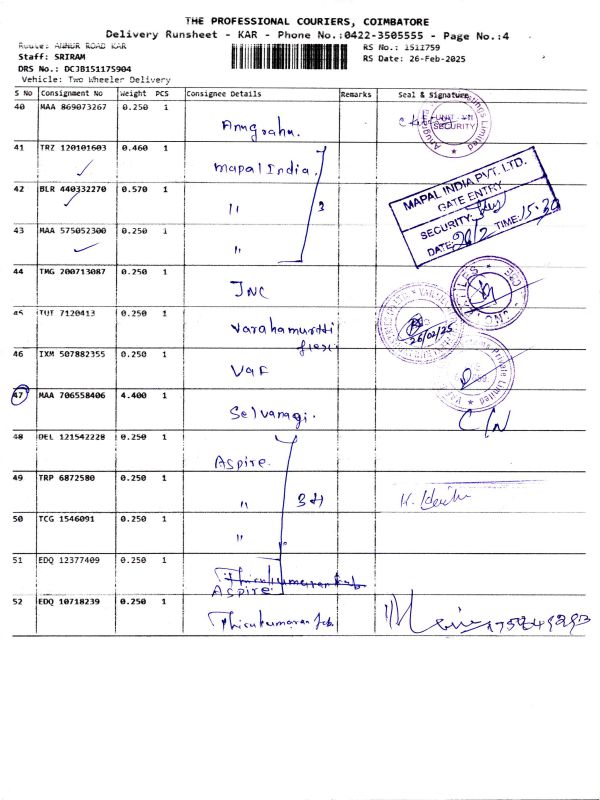 THE PROFESSIONAL COURIERS, COIMBATORE
Delivery Runsheet - KAR - Phone No.:0422-3505555 - Page No.:4
Route: ANNUR ROAD KAR
RS No.: 1511759
Staff: SRIRAM
RS Date: 26-Feb-2025
DRS No.: DCJB151175904
Vehicle: Two Wheeler Delivery
S No Consignment No Weight PCS Consignee Details Remarks Seal & Signature
40 MAA 869073267 0.250 1
Anugraha.
UNIT - VII
SECURITY
41 TRZ 120101603 0.460 1
Mapal India.
MAPAL INDIA PVT. LTD.
GATE ENTRY
SECURITY:
DATE: 26/2 TIME: 15-30
42 BLR 440332270 0.570 1
"
3
43 MAA 575052300 0.250 1
"
44 TMG 200713087 0.250 1
JNC
45 TUT 7120413 0.250 1
Varahamurtti
26/02/25
46 IXM 507882355 0.250 1
VAF
Private Limited
47 MAA 706558406 4.400 1
Selvaragi.
C/N
48 DEL 121542228 0.250 1
Aspire.
49 TRP 6872580 0.250 1
"
50 TCG 1546091 0.250 1
"
51 EDQ 12377409 0.250 1
Thirukumaran Fab
Aspire.
52 EDQ 10718239 0.250 1
Thirukumaran Fab.